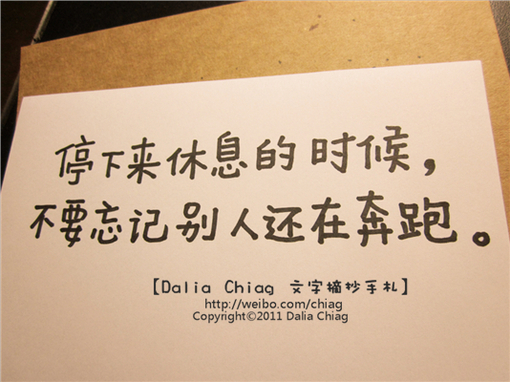 停下来休息的时候，
不要忘记别人还在奔跑。
【Dalia Chiag 文字摘抄手札】
http://weibo.com/chiag
Copyright©2011 Dalia Chiag